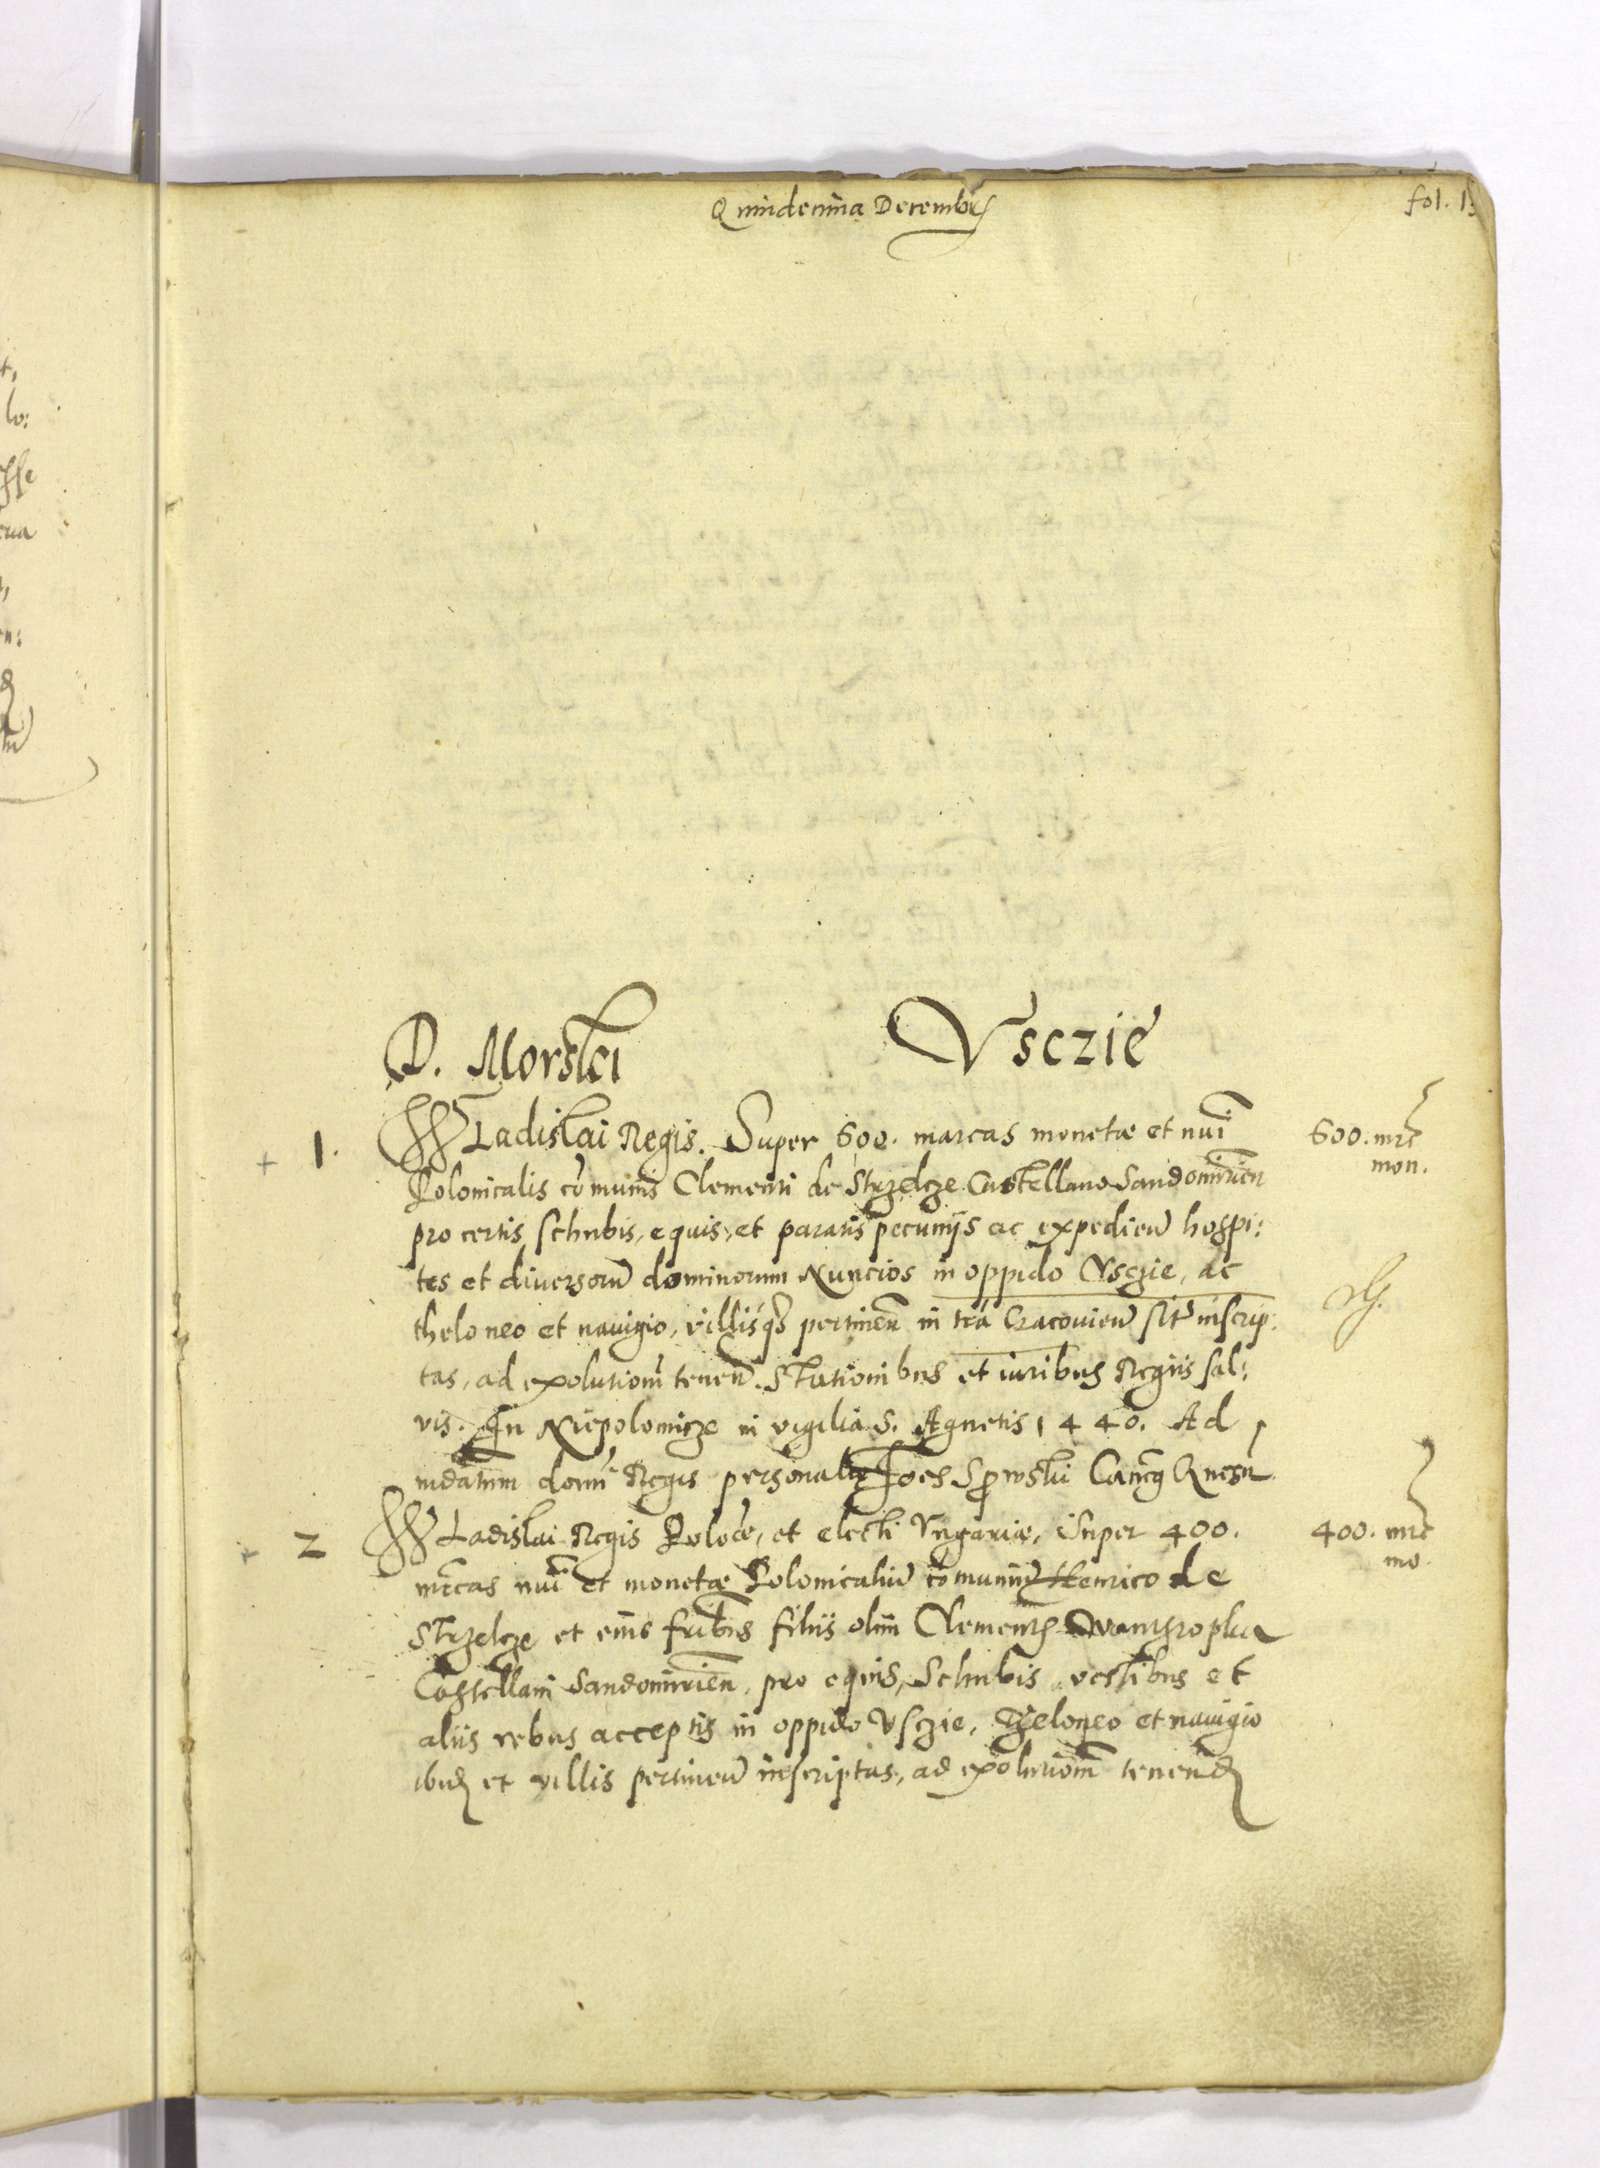 Quindenna Decembris
fol. 1
D. Morski Vsczie
+ 1. Wladislai Regis. Super 600. marcas monetæ et nui 600. mrc
Polonicalis cōmunis Clementi de Strzelcze Castellano Sandomirien mon.
pro certis schubis, equis, et paratis pecunijs ac expedien hospi:
tes et diuersorū dominorum Nuncios in oppido Vsczie, ac
theloneo et nauigio, villisqʒ pertinen in trā Cracouien sit inscrip:
tas, ad exolutiom tenen. Stationibus et iuribus Regijs sal:
vis. In Niepolomicze in vigilia S. Agnetis 1440. Ad
mdatum domi Regis personale Joes Sprowski Canc Gnesn
+ 2 Wladislai Regis Poloæ, et electi Vngariæ, Super 400. 400. mrc
mrcas nui et monetæ Polonicaliū cōmuniū Henrico de mo.
Strzelcze et eius fribus filijs olim Clementis Wanthropka
Castellani Sandomirien, pro equis, Schubis, vestibus et
alijs rebus acceptis in oppido Vsczie, Theloneo et nauigio
ibid et villis pertinen inscriptas, ad exolutiom tenend